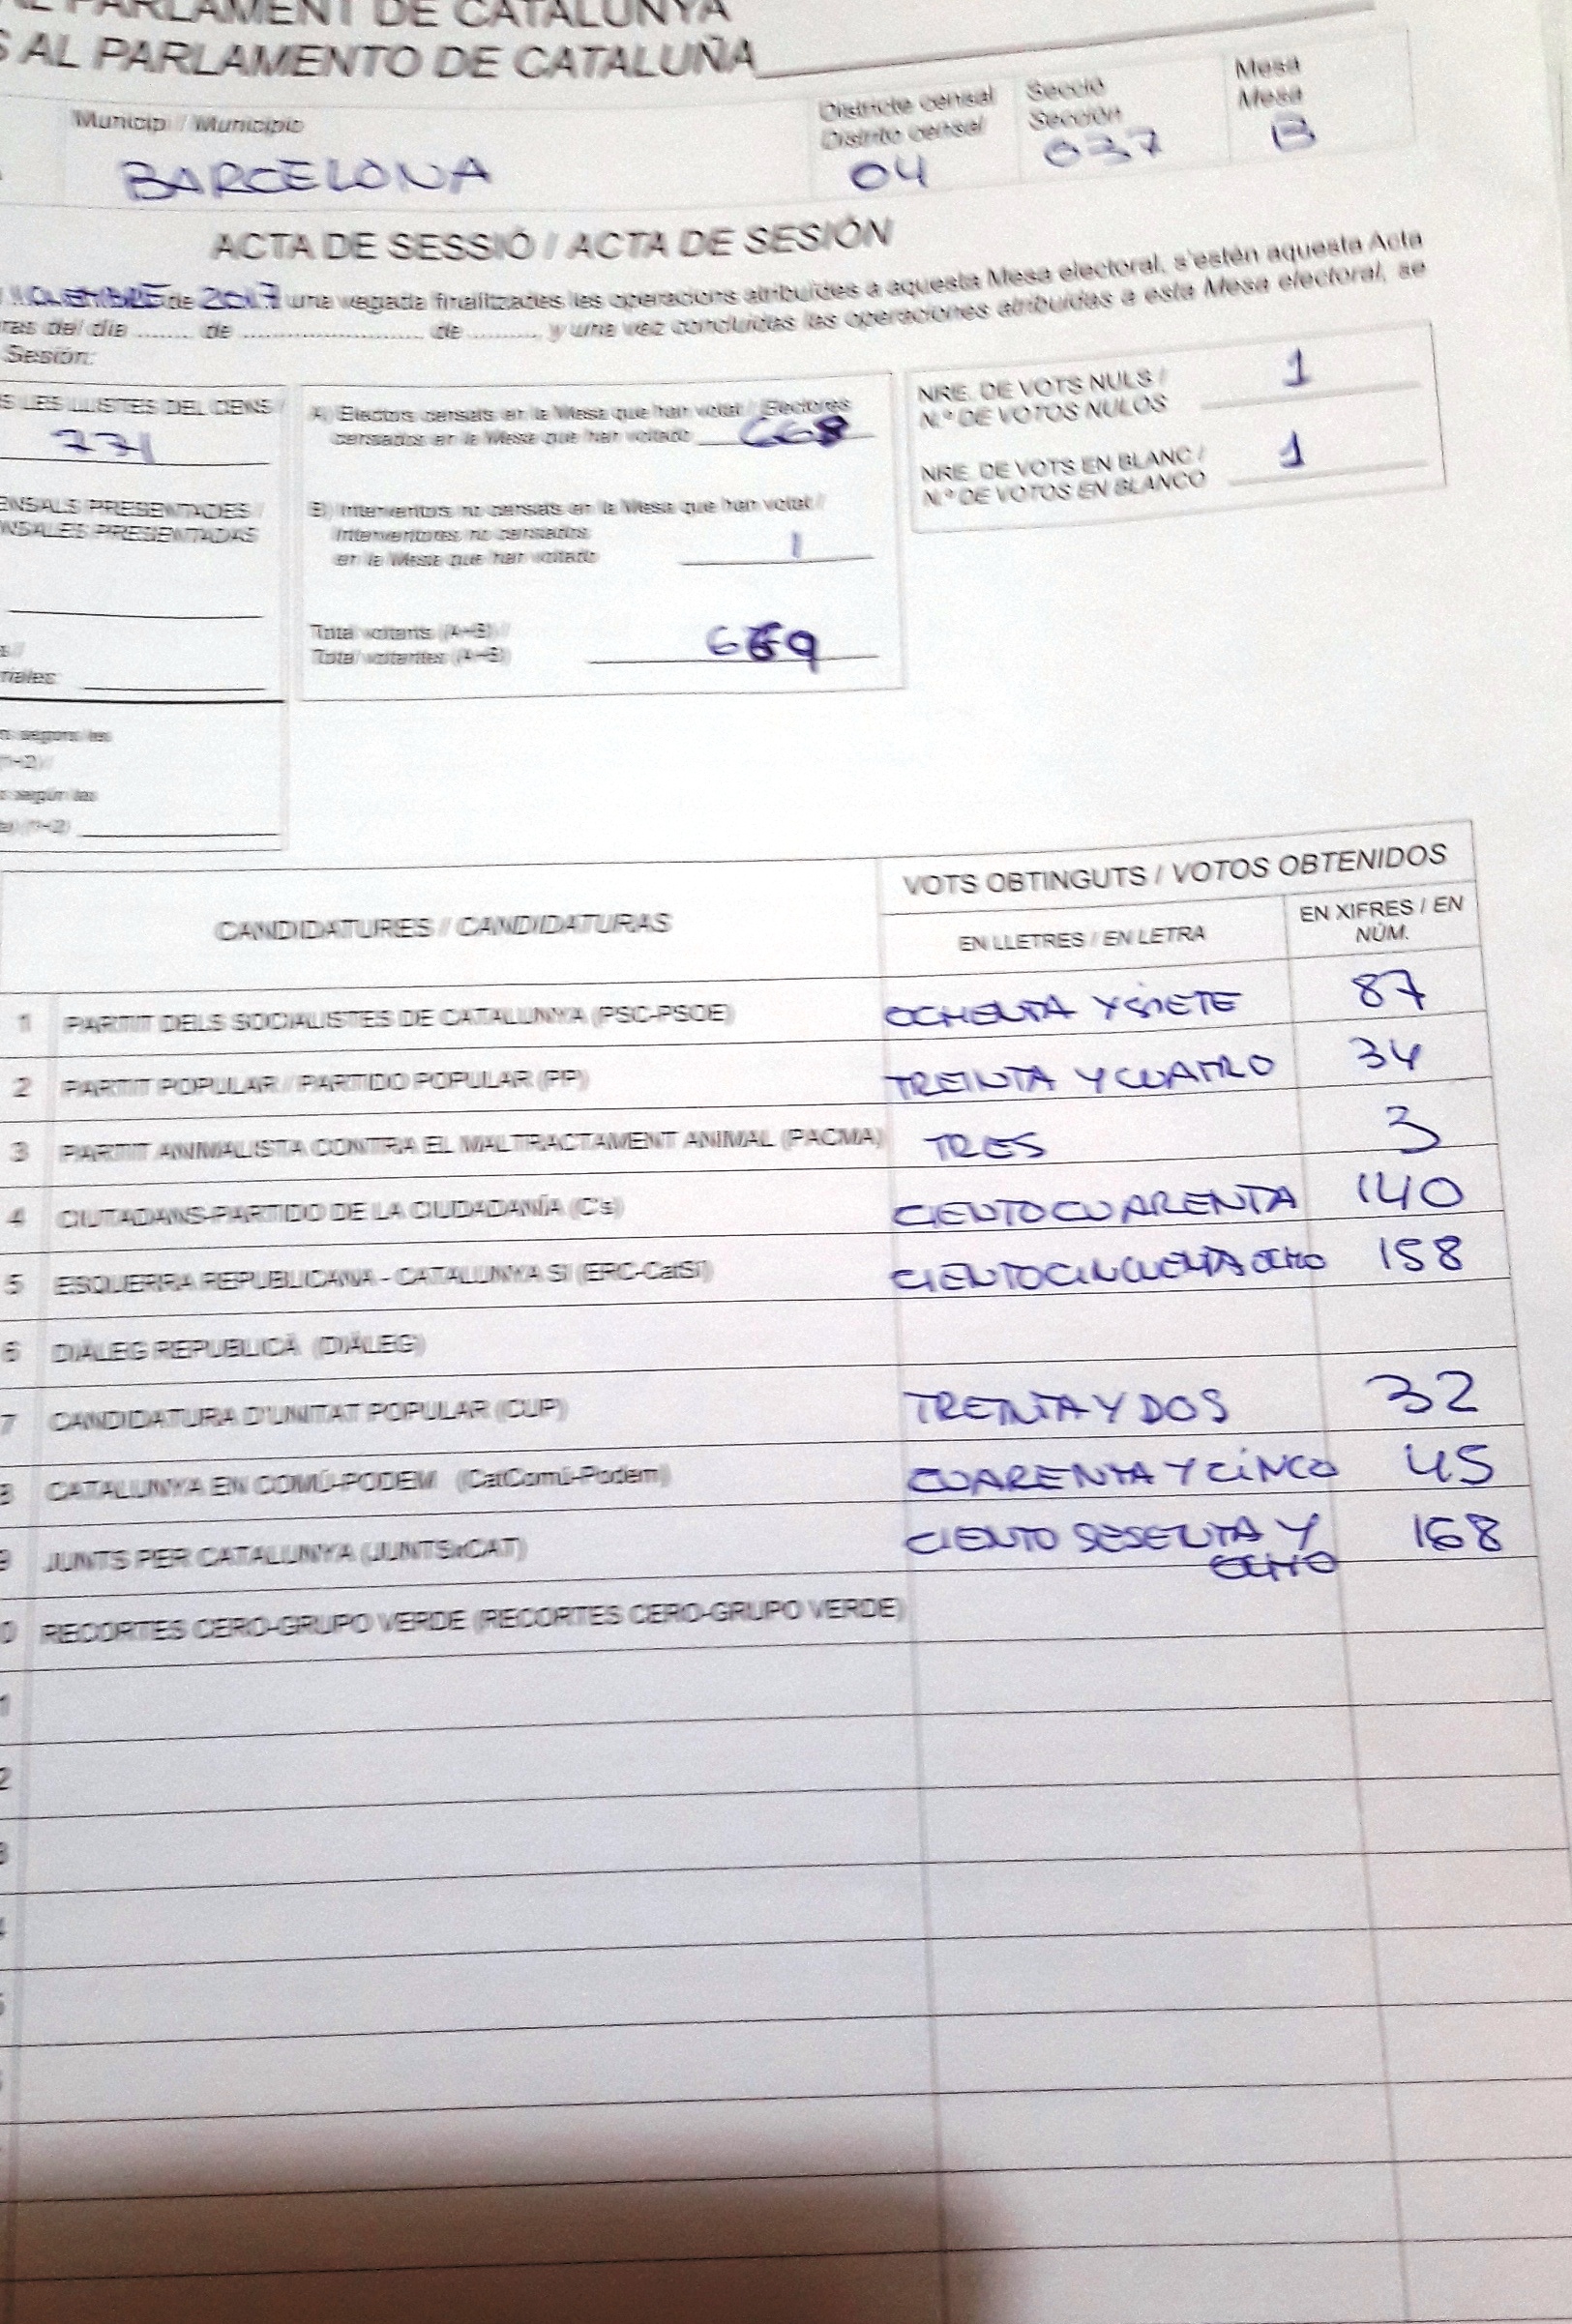 AL PARLAMENT DE CATALUNYA
S AL PARLAMENTO DE CATALUÑA
Municipi / Municipio
BARCELONA
Districte censal
Distrito censal
04
Secció
Sección
037
Mesa
Mesa
B
ACTA DE SESSIÓ / ACTA DE SESIÓN
de 2017 una vegada finalitzades les operacions atribuïdes a aquesta Mesa electoral, s'estén aquesta Acta
ras del día ........ de ........................ de .........., y una vez concluidas las operaciones atribuidas a esta Mesa electoral, se
Sesión:
S LES LLISTES DEL CENS /
771
ENSALS PRESENTADES /
NSALES PRESENTADAS
riales:
segons les
(1+2) /
según las
(1+2)
A) Electors censats en la Mesa que han votat / Electores
censados en la Mesa que han votado 668
B) Interventors no censats en la Mesa que han votat /
Interventores no censados
en la Mesa que han votado 1
Total votants (A+B) /
Total votantes (A+B) 669
NRE. DE VOTS NULS /
N.º DE VOTOS NULOS 1
NRE. DE VOTS EN BLANC /
N.º DE VOTOS EN BLANCO 1
CANDIDATURES / CANDIDATURAS
VOTS OBTINGUTS / VOTOS OBTENIDOS
EN LLETRES / EN LETRA
EN XIFRES / EN
NÚM.
1 PARTIT DELS SOCIALISTES DE CATALUNYA (PSC-PSOE) OCHENTA Y SIETE 87
2 PARTIT POPULAR / PARTIDO POPULAR (PP) TREINTA Y CUATRO 34
3 PARTIT ANIMALISTA CONTRA EL MALTRACTAMENT ANIMAL (PACMA) TRES 3
4 CIUTADANS-PARTIDO DE LA CIUDADANÍA (C's) CIENTO CUARENTA 140
5 ESQUERRA REPUBLICANA - CATALUNYA SÍ (ERC-CatSí) CIENTO CINCUENTA OCHO 158
6 DIÀLEG REPUBLICÀ (DIÀLEG)
7 CANDIDATURA D'UNITAT POPULAR (CUP) TREINTA Y DOS 32
8 CATALUNYA EN COMÚ-PODEM (CatComú-Podem) CUARENTA Y CINCO 45
9 JUNTS PER CATALUNYA (JUNTSxCAT) CIENTO SESENTA Y 168
OCHO
0 RECORTES CERO-GRUPO VERDE (RECORTES CERO-GRUPO VERDE)
1
2
3
4
5